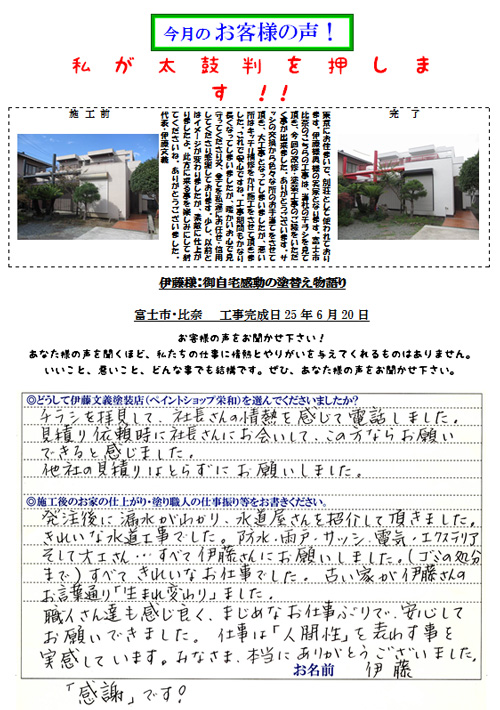 今月の お客様の声！
私が太鼓判を押しま
す!!
施工前
完了
東京にお住まいで、別荘として使われており
ます。伊藤様奥様の実家となります。富士市
比奈のこちらの工事は、当社のチラシを見て
頂き、今回の改修・塗装工事のご縁をいただ
く事が出来ました。ありがとうございます。サ
頂き、大工事となってしまいましたが、悪い
所はキッチリ補修をかけ施工をさせて頂きま
した。これで安心ですね。工事期間もかなり
長くなってしまいましたが、暖かいお心で見
守ってくださり又、全てを私達にお任せ・信用
してくださり感謝しております。少し、以前と
はイメージが変わりましたが、素敵に仕上が
りましたよ。此方に来る事を楽しみにして居
てくださいね。ありがとうございました。
代表・伊藤文義
伊藤様：御自宅感動の塗替え物語り
富士市・比奈　工事完成日25年6月20日
お客様の声をお聞かせ下さい！
あなた様の声を聞くほど、私たちの仕事に情熱とやりがいを与えてくれるものはありません。
いいこと、悪いこと、どんな事でも結構です。ぜひ、あなた様の声をお聞かせ下さい。
◎どうして伊藤文義塗装店（ペイントショップ栄和）を選んでくださいましたか？
チラシを拝見して、社長さんの情熱を感じて電話しました。
見積り依頼時に社長さんにお会いして、この方ならお願い
できると感じました。
他社の見積りはとらずにお願いしました。
◎施工後のお家の仕上がり・塗り職人の仕事振り等をお書きください。
発注後に漏水がわかり、水道屋さんを紹介して頂きました。
きれいな水道工事でした。防水・雨戸・サッシ・電気・エクステリア
そして大工さん…すべて伊藤さんにお願いしました。（ゴミの処分
まで）すべてきれいなお仕事でした。古い家が伊藤さんの
お言葉通り「生まれ変わり」ました。
職人さん達も感じ良く、まじめなお仕事ぶりで、安心して
お願いできました。仕事は「人間性」を表わす事を
実感しています。みなさま、本当にありがとうございました。
お名前　伊藤
「感謝」です！